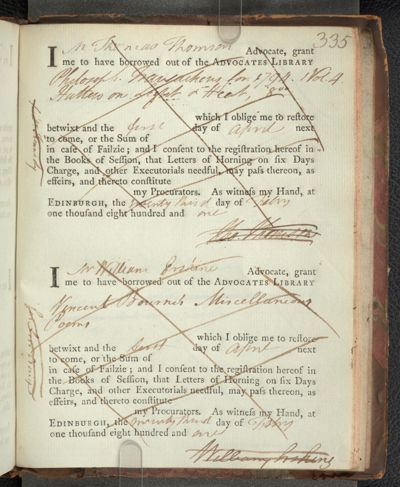 335
I Mr Thomas Thomson Advocate, grant
me to have borrowed out of the ADVOCATES LIBRARY
Philosoph. Transactions for 1794. Vol. 4
Hutton on Light & Heat,
which I oblige me to restore
betwixt and the first day of April next
to come, or the Sum of
in case of Failzie; and I consent to the registration hereof in
the Books of Session, that Letters of Horning on six Days
Charge, and other Executorials needful, may pass thereon, as
effeirs, and thereto constitute
my Procurators. As witness my Hand, at
EDINBURGH, the twenty third day of Febry
one thousand eight hundred and one
Tho Thomson
I Mr William Erskine Advocate, grant
me to have borrowed out of the ADVOCATES LIBRARY
Vincent Bourne's Miscellaneous
Poems
which I oblige me to restore
betwixt and the first day of April next
to come, or the Sum of
in case of Failzie; and I consent to the registration hereof in
the Books of Session, that Letters of Horning on six Days
Charge, and other Executorials needful, may pass thereon, as
effeirs, and thereto constitute
my Procurators. As witness my Hand, at
EDINBURGH, the twenty third day of Febry
one thousand eight hundred and one
William Erskine